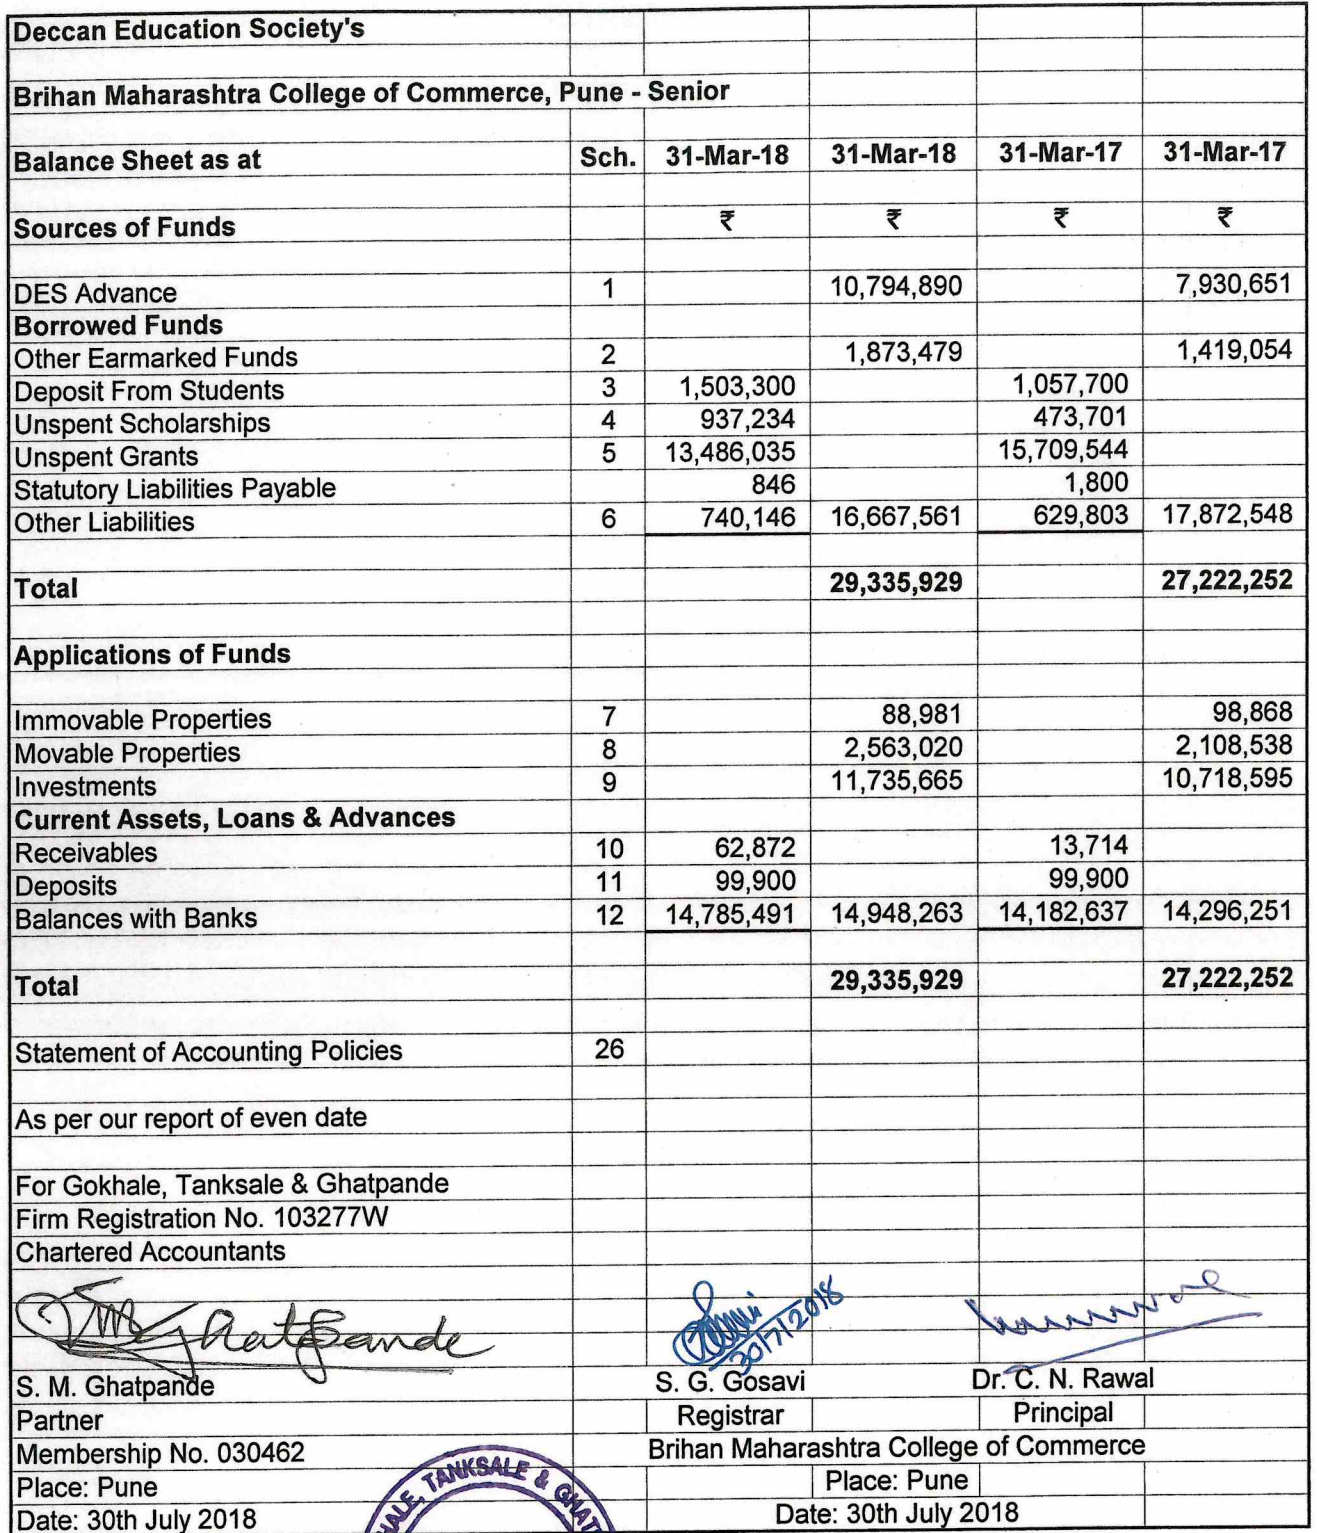 Deccan Education Society's
Brihan Maharashtra College of Commerce, Pune - Senior
Balance Sheet as at Sch. 31-Mar-18 31-Mar-18 31-Mar-17 31-Mar-17
Sources of Funds ₹ ₹ ₹ ₹
DES Advance 1 10,794,890 7,930,651
Borrowed Funds
Other Earmarked Funds 2 1,873,479 1,419,054
Deposit From Students 3 1,503,300 1,057,700
Unspent Scholarships 4 937,234 473,701
Unspent Grants 5 13,486,035 15,709,544
Statutory Liabilities Payable 846 1,800
Other Liabilities 6 740,146 16,667,561 629,803 17,872,548
Total 29,335,929 27,222,252
Applications of Funds
Immovable Properties 7 88,981 98,868
Movable Properties 8 2,563,020 2,108,538
Investments 9 11,735,665 10,718,595
Current Assets, Loans & Advances
Receivables 10 62,872 13,714
Deposits 11 99,900 99,900
Balances with Banks 12 14,785,491 14,948,263 14,182,637 14,296,251
Total 29,335,929 27,222,252
Statement of Accounting Policies 26
As per our report of even date
For Gokhale, Tanksale & Ghatpande
Firm Registration No. 103277W
Chartered Accountants
Ghatpande
30/7/2018
S. M. Ghatpande S. G. Gosavi Dr. C. N. Rawal
Partner Registrar Principal
Membership No. 030462 Brihan Maharashtra College of Commerce
Place: Pune Place: Pune
Date: 30th July 2018 Date: 30th July 2018
TANKSALE &